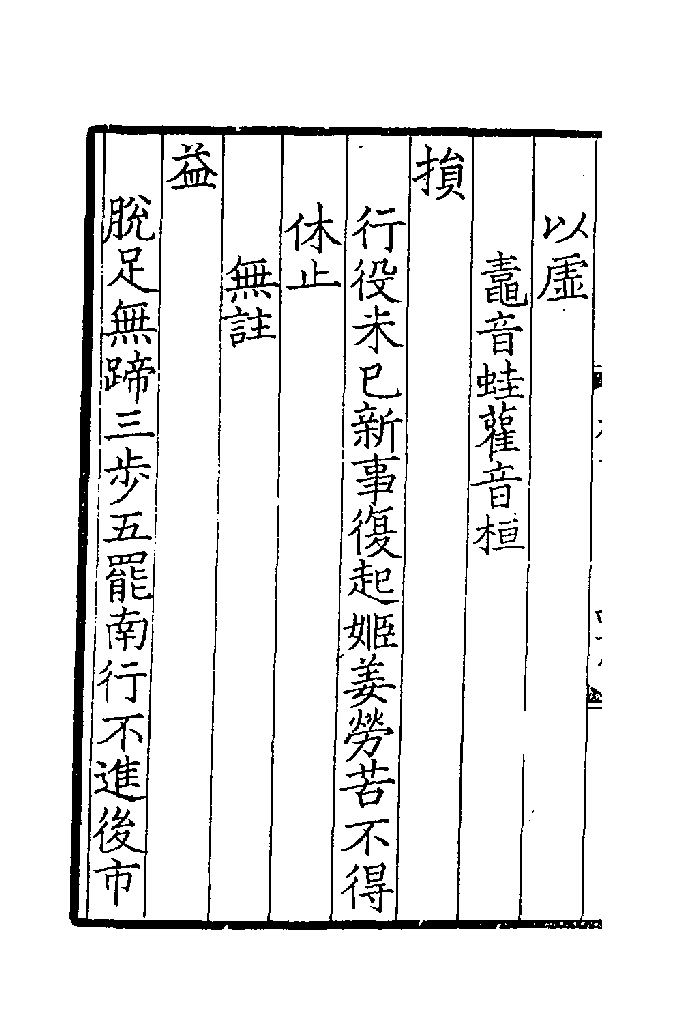 以虛
鼃音蛙雚音桓
損
行役未已新事復起姬姜勞苦不得
休止
無註
益
脫足無蹄三步五罷南行不進後市